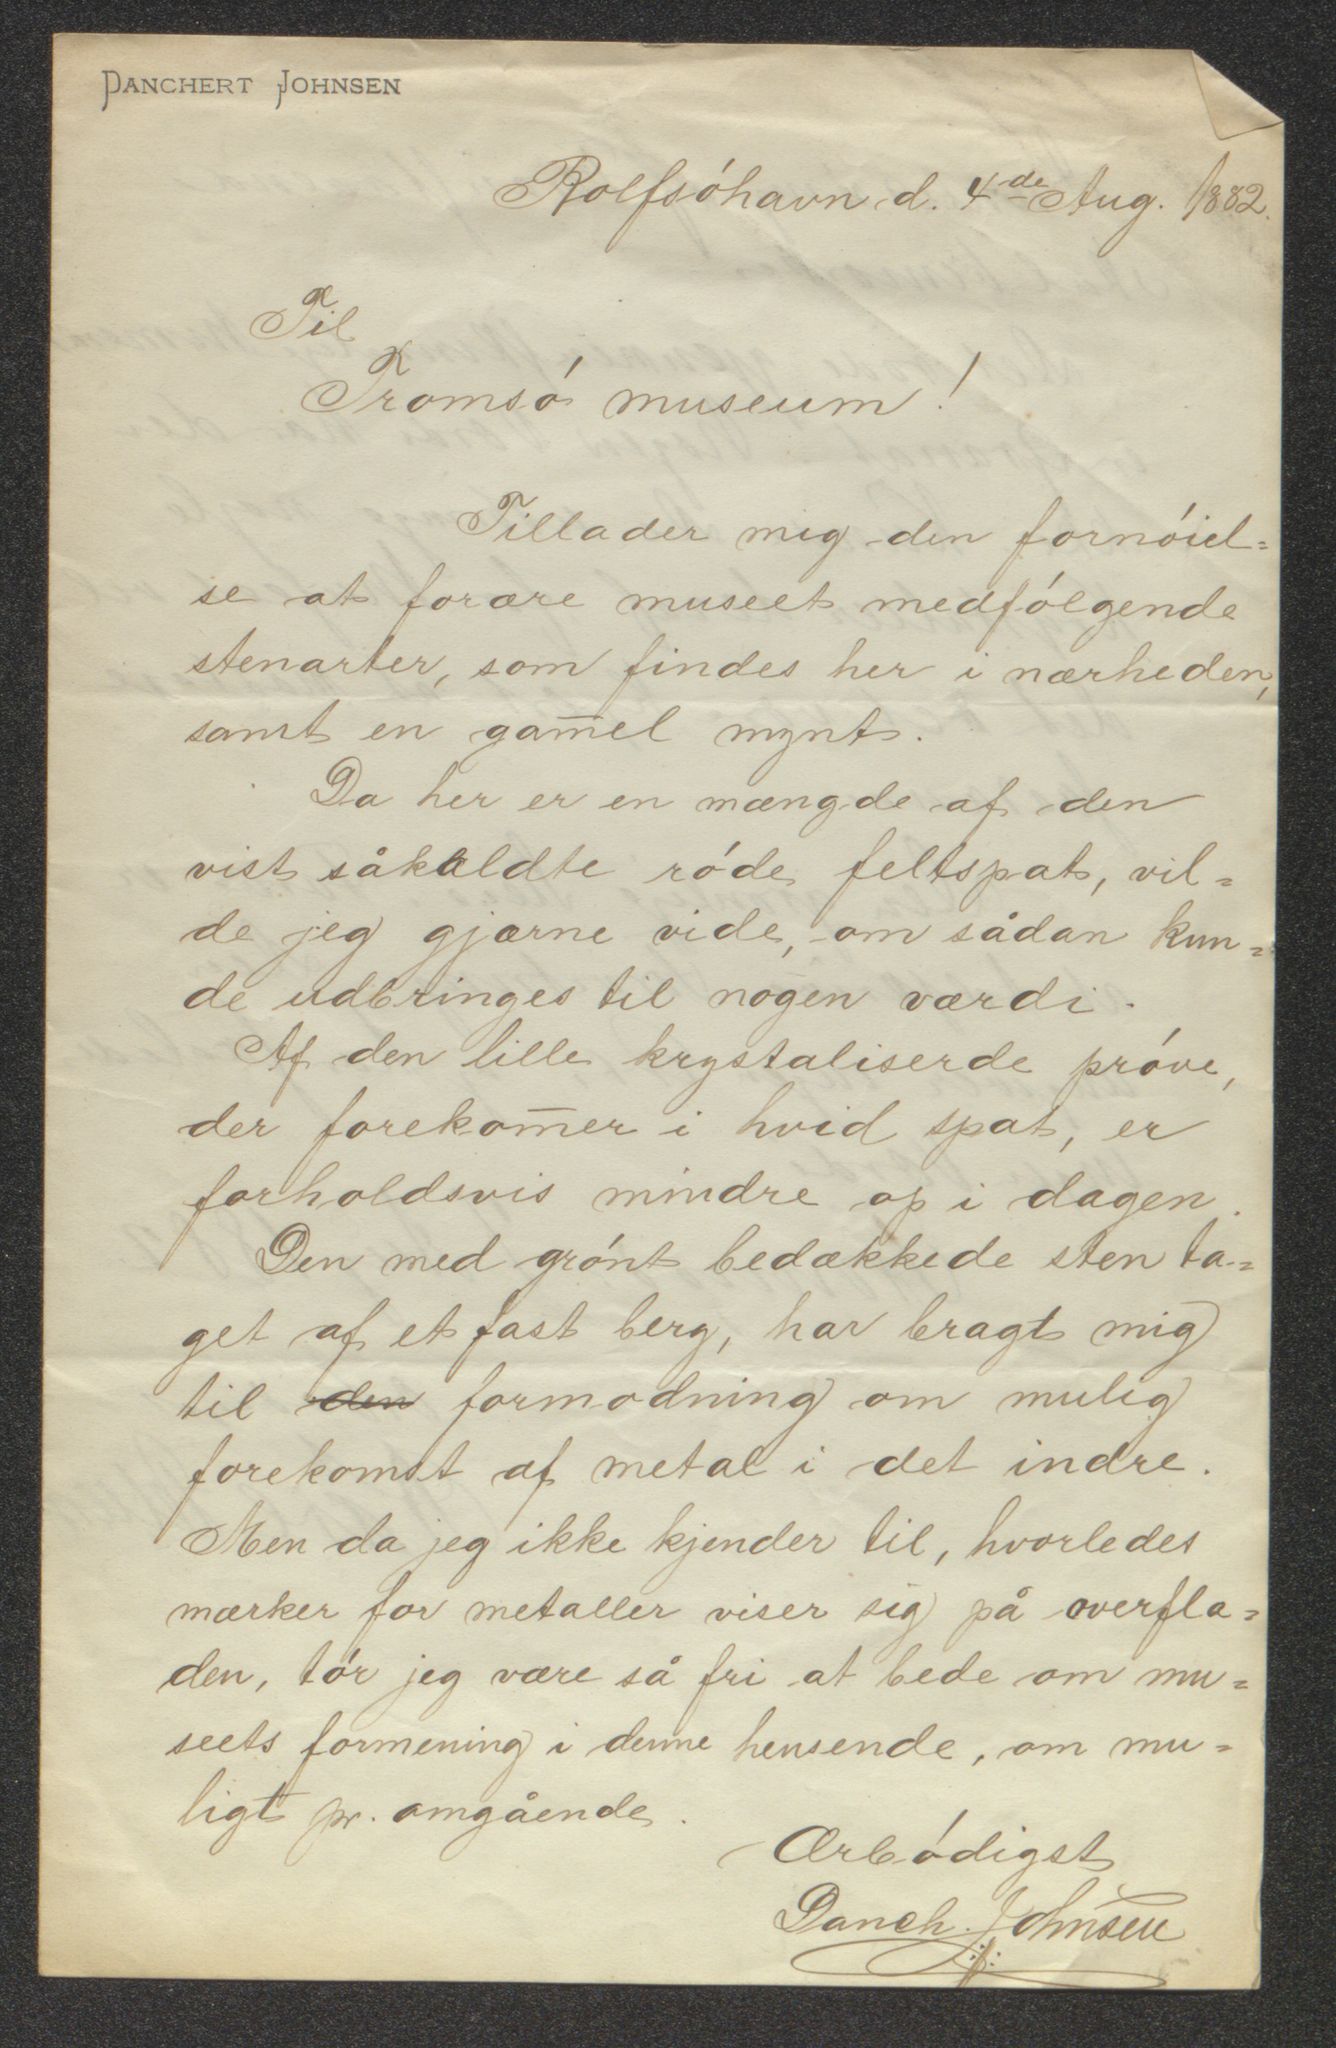 DANCHERT JOHNSEN
Rolfsóhavn d. 4de Aug. 1882.
Til
Tromsó museum!
Tillader mig den fornóiel=
se at forære museet medfólgende
stenarter, som findes her i nærheden,
samt en gam̄el mynt.
Da her er en mængde af den
vist såkaldte róde feltspat, vil=
de jeg gjærne vide, om sådan kun=
de udbringes til nogen værdi.
Af den lille krystaliserde próve,
der forekom̄er i hvid spat, er
forholdsvis mindre op i dagen.
Den med grónt bedækkede sten ta=
get af et fast berg, har bragt mig
til den formodning om mulig
forekomst af metal i det indre.
Men da jeg ikke kjender til, hvorledes
mærker for metaller viser sig på overfla=
den, tór jeg være så fri at bede om mu=
seets formening i denne hensende, om mu=
ligt pr. omgående.
Ærbódigst
Danch. Johnsen